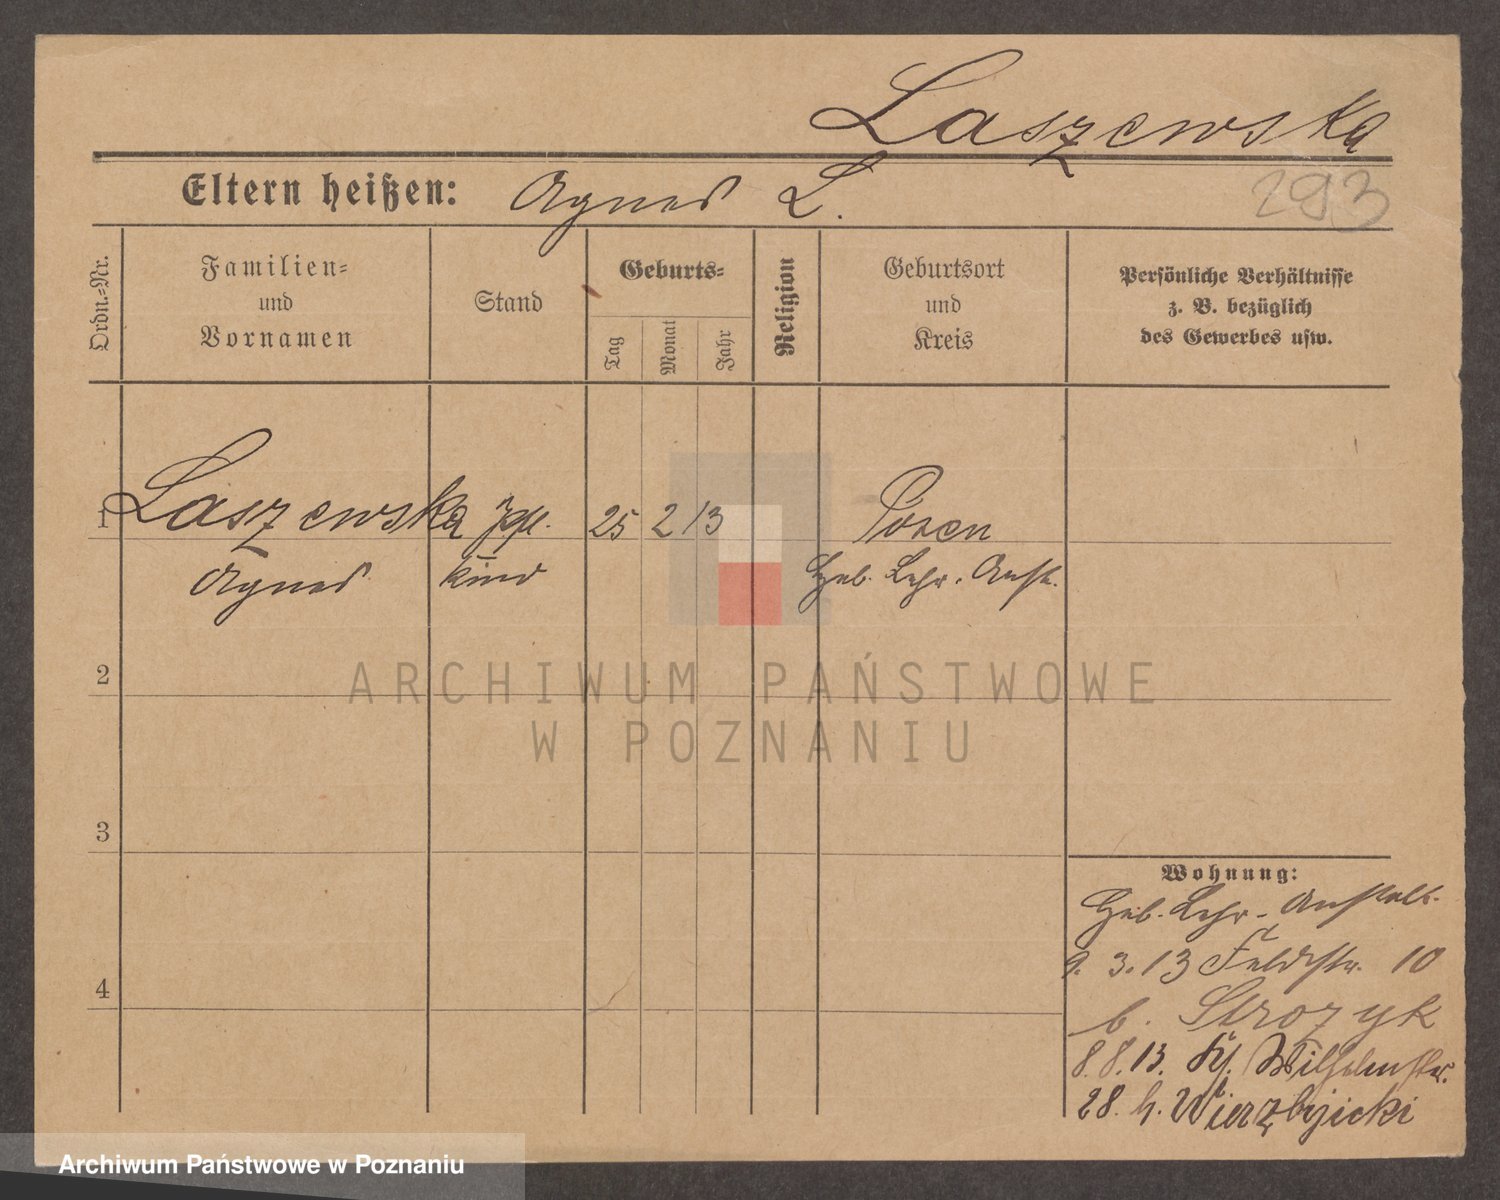 Laszewska
Eltern heißen: Agnes L.
293
Ordn.-Nr.
Familien-
und
Vornamen
Stand
Geburts-
Tag
Monat
Jahr
Religion
Geburtsort
und
Kreis
Persönliche Verhältnisse
z. B. bezüglich
des Gewerbes usw.
1 Laszewska 25 2 13 Posen
Agnes kind Heb. Lehr. Anst.
ARCHIWUM PAŃSTWOWE
W POZNANIU
2
3
4
Wohnung:
Heb. Lehr- Anstalt.
9. 3. 13 Feldstr. 10
b. Strozyk
8. 8. 13. Wilhelmstr.
28. b. Wierzbijicki
Archiwum Państwowe w Poznaniu